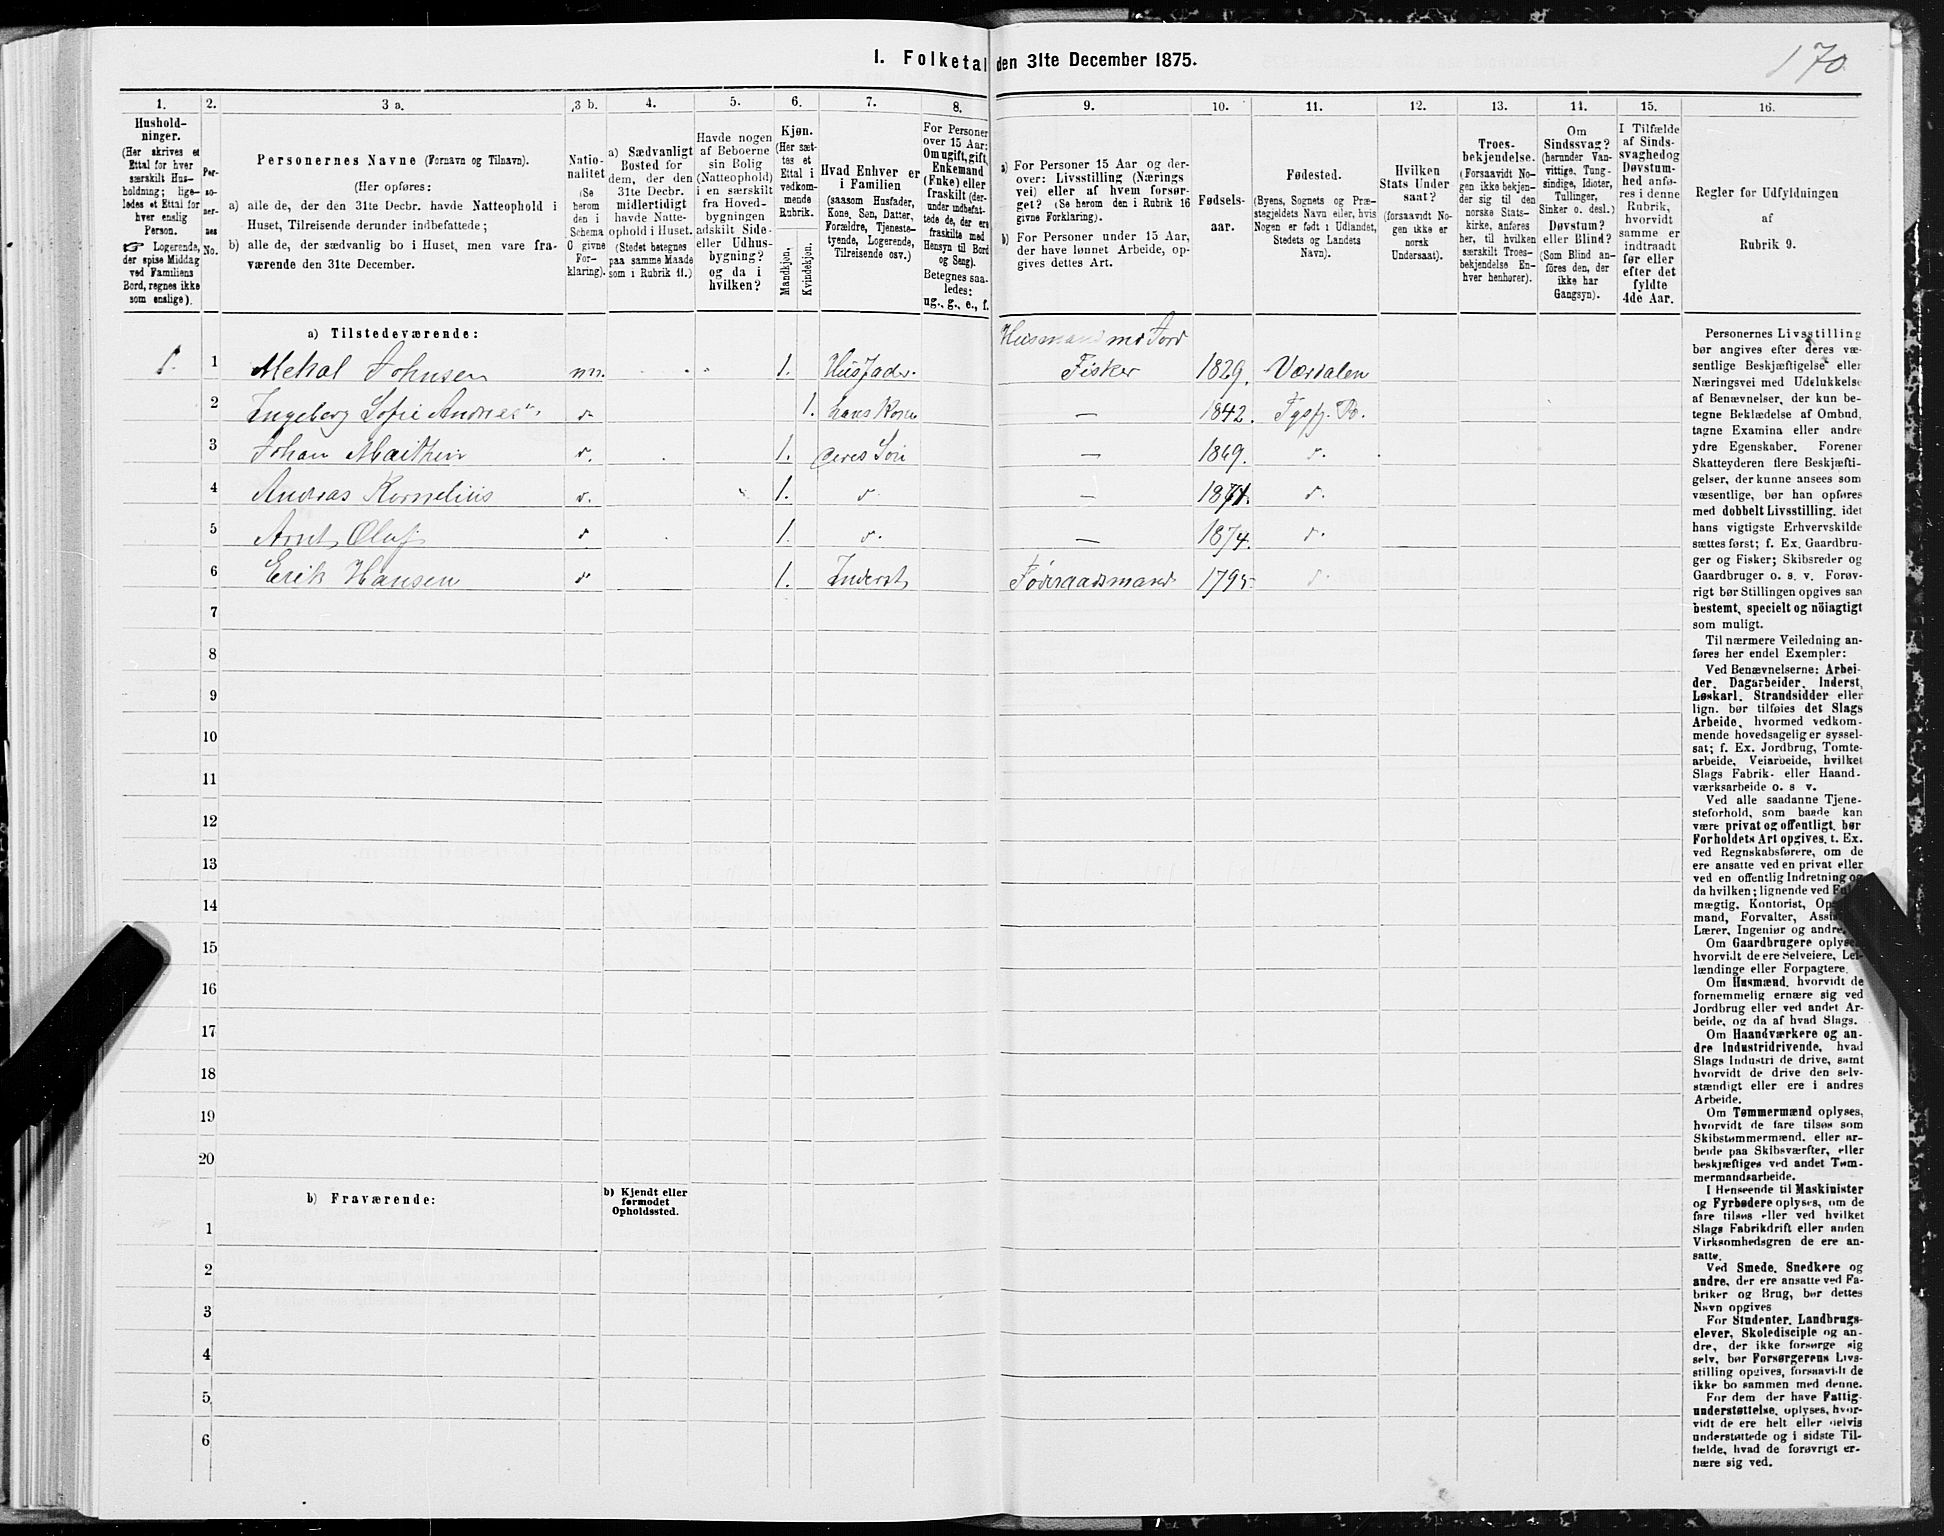 170
I. Folketal den 31te December 1875.
1. 2. 3 a. 3 b. 4. 5. 6. 7. 8. 9. 10. 11. 12. 13. 14. 15. 16.
Hushold-
ninger.
(Her skrives et
Ettal for hver
særskilt Hus-
holdning; lige-
ledes et Ettal for
hver enslig
Person.
☞ Logerende,
der spise Middag
ved Familiens
Bord, regnes ikke
som enslige).
Per-
so-
ner-
nes
No.
Personernes Navne (Fornavn og Tilnavn).
(Her opføres:
a) alle de, der den 31te Decbr. havde Natteophold i
Huset, Tilreisende derunder indbefattede;
b) alle de, der sædvanlig bo i Huset, men vare fra-
værende den 31te December.
Natio-
nalitet
(Se
herom
den i
Schema
O givne
For-
klaring).
a) Sædvanligt
Bosted for
dem, der den
31te Decbr.
midlertidigt
havde Natte-
ophold i Huset.
(Stedet betegnes
paa samme Maade
som i Rubrik 11.)
Havde nogen
af Beboerne
sin Bolig
(Natteophold)
i en særskilt
fra Hoved-
bygningen
adskilt Side-
eller Udhus-
bygning?
og da i
hvilken?
Kjøn.
(Her sæt-
tes et
Ettal i
vedkom-
mende
Rubrik.
Mandkjøn.
Kvindekjøn.
Hvad Enhver er
i Familien
(saasom Husfader,
Kone, Søn, Datter,
Forældre, Tjeneste-
tyende, Logerende,
Tilreisende osv.)
For Personer
over 15 Aar:
Om ugift, gift,
Enkemand
(Enke) eller
fraskilt (der-
under indbefat-
tede de, der ere
fraskilte med
Hensyn til Bord
og Seng).
Betegnes saa-
ledes:
ug., g., e., f.
a) For Personer 15 Aar og der-
over: Livsstilling (Nærings
vei) eller af hvem forsør-
get? (Se herom den i Rubrik 16
givne Forklaring).
b) For Personer under 15 Aar,
der have lønnet Arbeide, op-
gives dettes Art.
Fødsels-
aar.
Fødested.
(Byens, Sognets og Præ-
stegjeldets Navn eller, hvis
Nogen er født i Udlandet,
Stedets og Landets
Navn).
Hvilken
Stats Under
saat?
(forsaavidt No-
gen ikke er
norsk
Undersaat).
Troes-
bekjendelse.
(Forsaavidt No-
gen ikke bekjen-
der sig til den
norske Stats-
kirke, anføres
her, til hvilken
særskilt Troes-
bekjendelse En-
hver henhører).
Om
Sindssvag?
(herunder Van-
vittige, Tung-
sindige, Idioter,
Tullinger,
Sinker o. desl.)
Døvstum?
eller Blind?
(Som Blind an-
føres den, der
ikke har
Gangsyn).
I Tilfælde
af Sinds-
svaghed og
Døvstum-
hed anfø-
res i denne
Rubrik,
hvorvidt
samme er
indtraadt
før eller
efter det
fyldte
4de Aar.
Regler for Udfyldningen
af
Rubrik 9.
a) Tilstedeværende:
Husmand md Jord
1. 1 Mekal Johnsen nn. 1. Husfader. Fisker 1829. Værdalen
2 Ingeberg Sofie Andreas d 1. hans Kone — 1842. Tysfj. P.
3 Johan Maithin d. 1. deres Søn — 1869. d.
4 Andreas Kornelius d. 1. d — 1871. d.
5 Arnt Oluf d 1. d. — 1874. d.
6 Erik Hansen d 1. Inderst Føderaadsmand 1795 d
7
8
9
10
11
12
13
14
15
16
17
18
19
20
b) Fraværende:
b) Kjendt eller
formodet
Opholdssted.
1
2
3
4
5
6
Personernes Livsstilling
bør angives efter deres væ-
sentlige Beskjæftigelse eller
Næringsvei med Udelukkelse
af Benævnelser, der kun be-
tegne Beklædelse af Ombud,
tagne Examina eller andre
ydre Egenskaber. Forener
Skatteyderen flere Beskjæfti-
gelser, der kunne ansees som
væsentlige, bør han opføres
med dobbelt Livsstilling, idet
hans vigtigste Erhvervskilde
sættes først; f. Ex. Gaardbru-
ger og Fisker; Skibsreder og
Gaardbruger o. s. v. Forøv-
rigt bør Stillingen opgives saa
bestemt, specielt og nöiagtigt
som muligt.
Til nærmere Veiledning an-
føres her endel Exempler:
Ved Benævnelserne: Arbei-
der, Dagarbeider, Inderst,
Løskarl, Strandsidder eller
lign. bør tilføies det Slags
Arbeide, hvormed vedkom-
mende hovedsagelig er syssel-
sat; f. Ex. Jordbrug, Tomte-
arbeide, Veiarbeide, hvilket
Slags Fabrik- eller Haand-
værksarbeide o. s v.
Ved alle saadanne Tjene-
steforhold, som baade kan
være privat og offentligt, bør
Forholdets Art opgives, t. Ex.
ved Regnskabsførere, om de
ere ansatte ved en privat eller
ved en offentlig Indretning og
da hvilken; lignende ved Ful
mægtig, Kontorist, Op
mand, Forvalter, Assi
Lærer, Ingeniør og andre.
Om Gaardbrugere oplyses,
hvorvidt de ere Selveiere, Lei-
lændinge eller Forpagtere.
Om Husmænd, hvorvidt de
fornemmelig ernære sig ved
Jordbrug eller ved andet Ar-
beide, og da af hvad Slags.
Om Haandværkere og an-
dre Industridrivende, hvad
Slags Industri de drive, samt
hvorvidt de drive den selv-
stændigt eller ere i andres
Arbeide.
Om Tømmermænd oplyses,
hvorvidt de fare tilsøs som
Skibstømmermænd, eller ar-
beide paa Skibsværfter, eller
beskjæftiges ved andet Tøm-
mermandsarbeide.
I Henseende til Maskinister
og Fyrbødere oplyses, om de
fare tilsøs eller ved hvilket
Slags Fabrikdrift eller anden
Virksomhedsgren de ere an-
satte.
Ved Smede, Snedkere og
andre, der ere ansatte ved Fa-
briker og Brug, bør dettes
Navn opgives
For Studenter, Landbrugs-
elever, Skoledisciple og an-
dre, der ikke forsørge sig
selv, bør Forsørgerens Livs-
stilling opgives, forsaavidt de
ikke bo sammen med denne.
For dem der have Fattig-
understøttelse, oplyses, hvor-
vidt de ere helt eller delvis
understøttede og i sidste Til-
fælde, hvad de forøvrigt er-
nære sig ved.